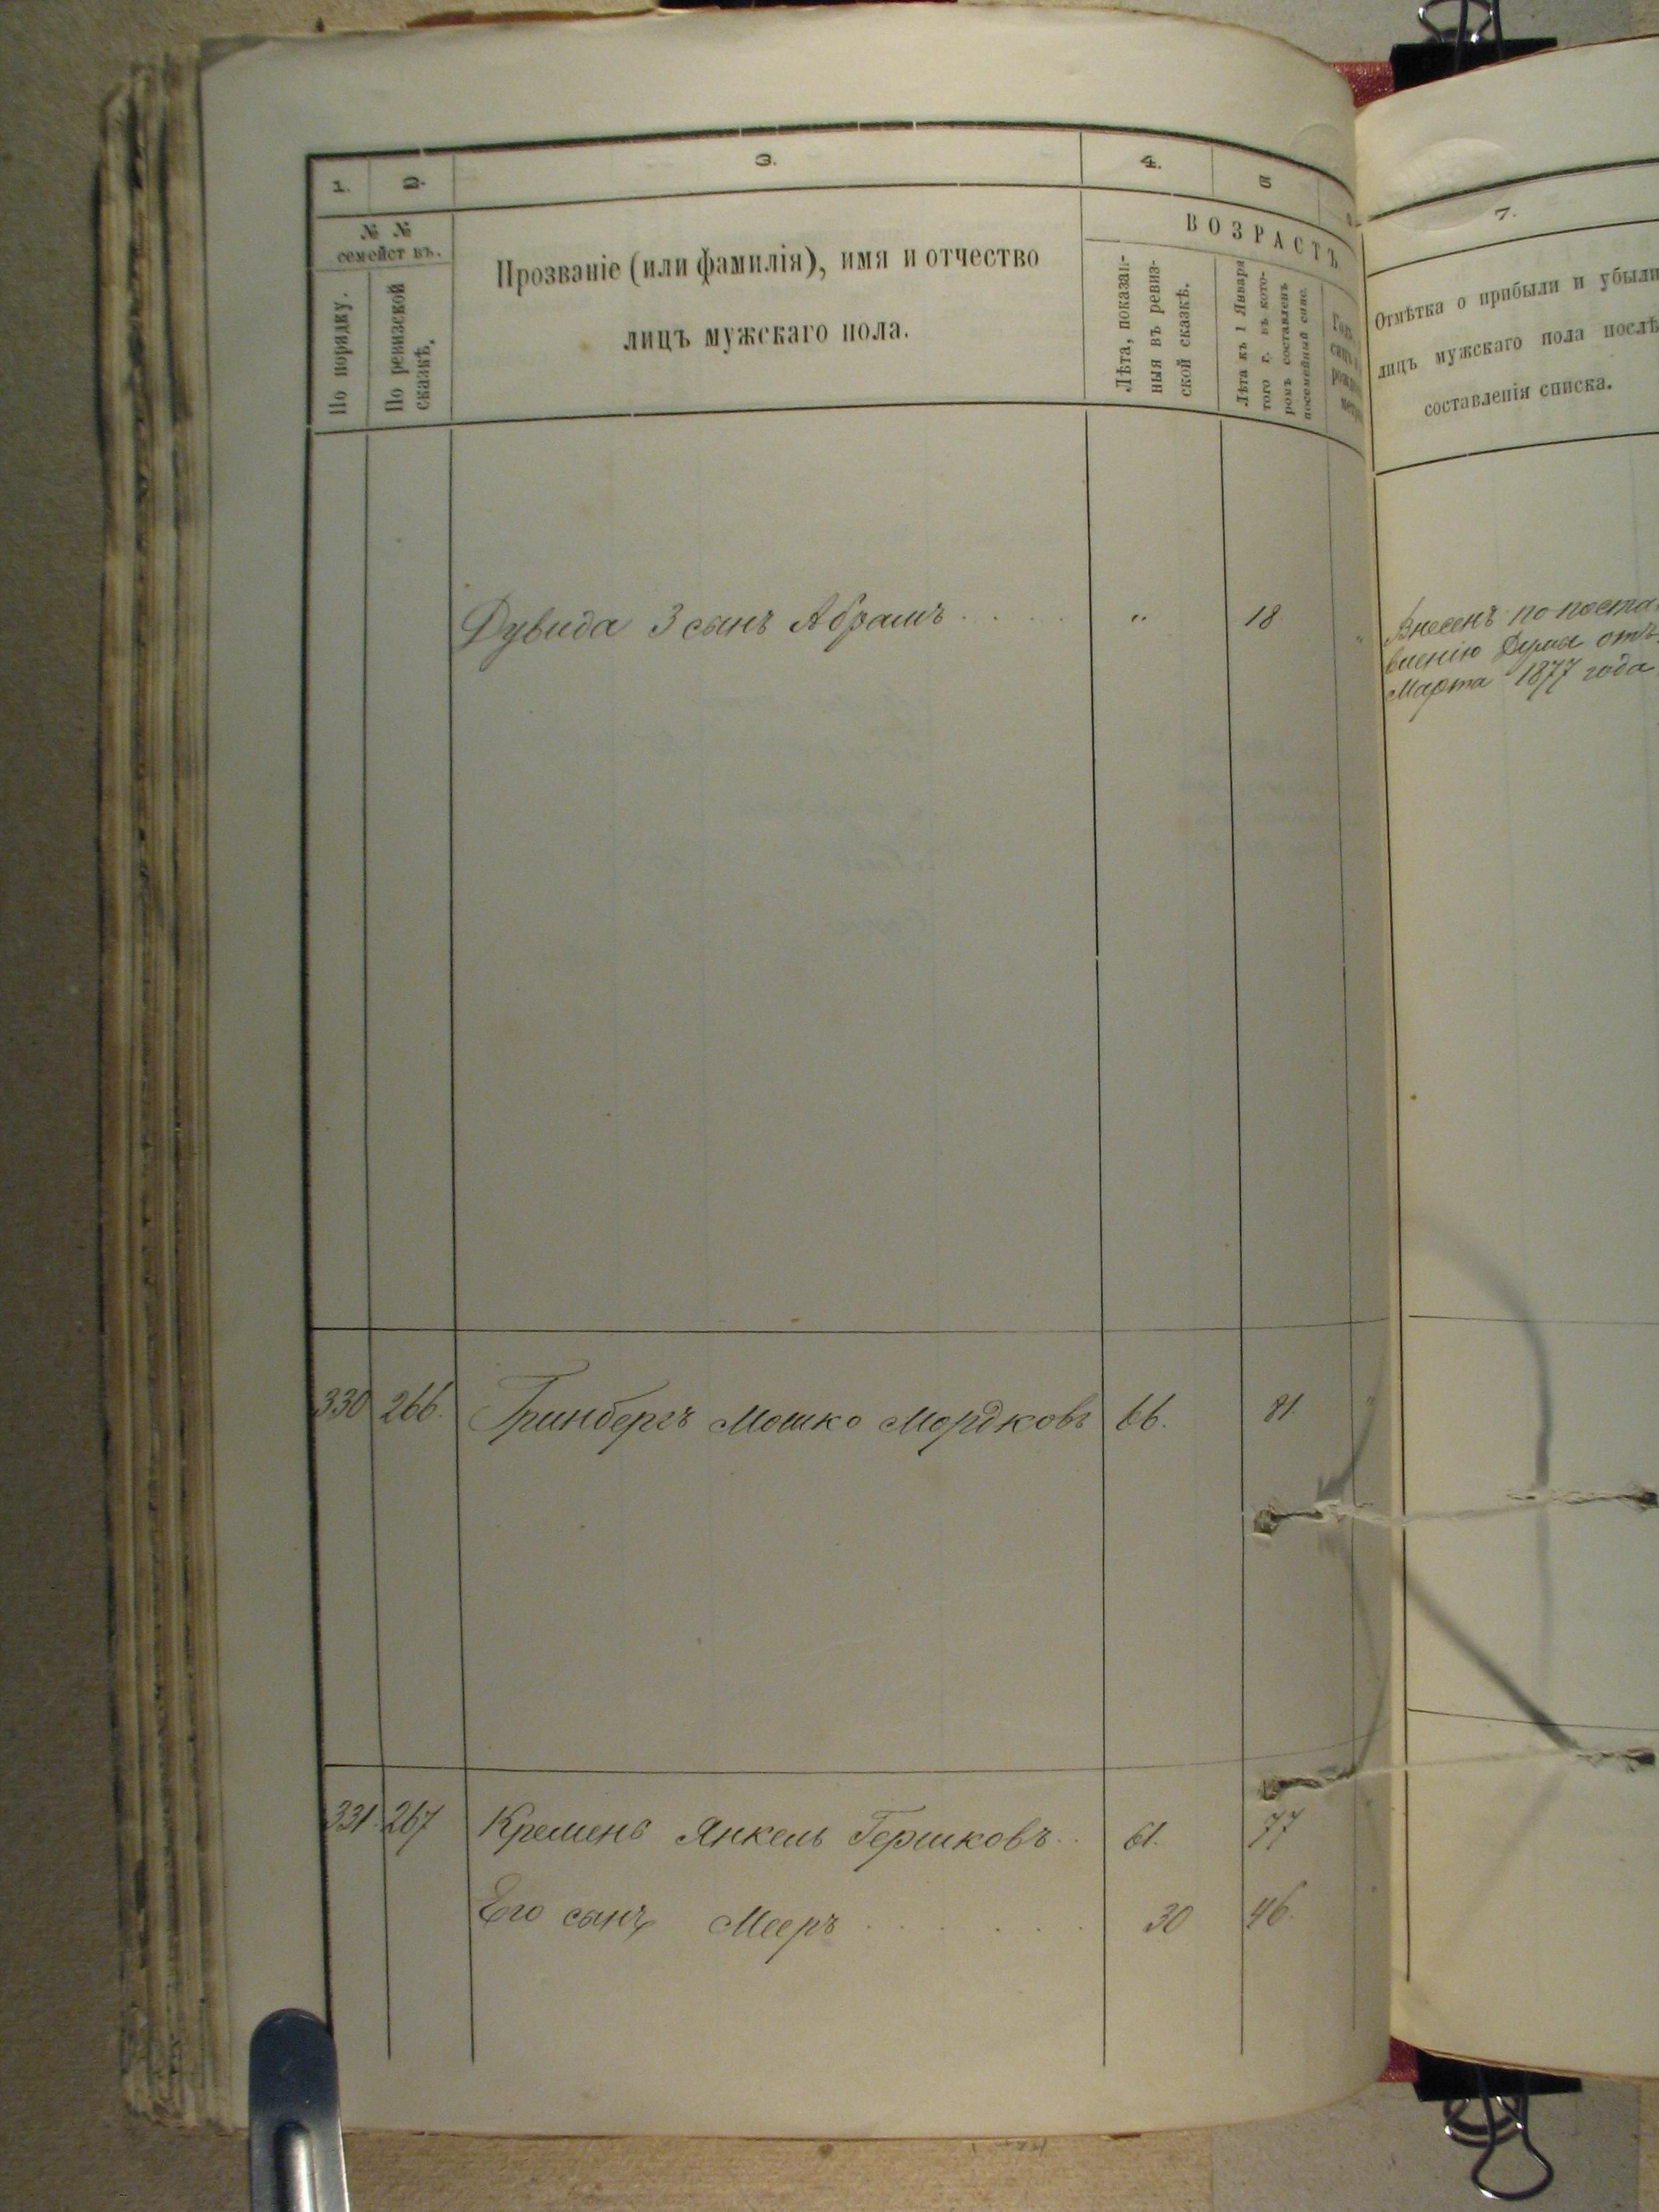 1.
2.
3.
4.
5
№ №
семействъ.
По порядку.
По ревизской
сказкѣ.
Прозваніе (или фамилія), имя и отчество
лицъ мужскаго пола.
ВОЗРАСТЪ
Лѣта, показан-
ныя въ ревиз-
ской сказкѣ.
Лѣта къ 1 Января
того г. въ кото-
ромъ составленъ
посемейный спис.
Дувида 3 сынъ Абрамъ . . . . . " 18 "
330 266. Гринбергъ Мошко Мордковъ 66. 81. "
331. 267 Кремень Янкель Гершковъ . . 61. 77
Его сынъ Мееръ . . . . . 30 46.
7.
Отмѣтка о прибыли и убыли
лицъ мужскаго пола послѣ
составленія списка.
Внесенъ по поста-
вленію Думы отъ
Марта 1877 года